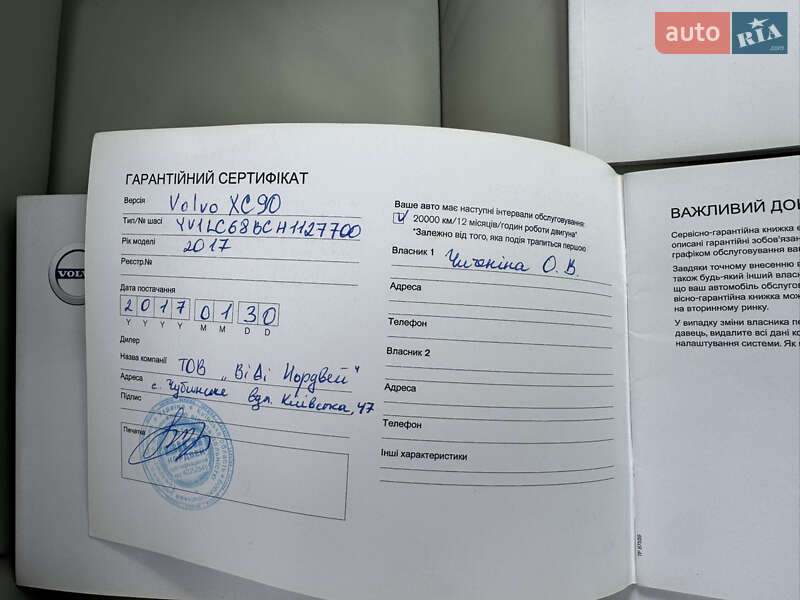 auto RIA.com
VOLVO
ГАРАНТІЙНИЙ СЕРТИФІКАТ
Версія Volvo XC90
Тип/№ шасі YV1LC68BCH1127700
Рік моделі 2017
Реєстр.№
Дата постачання
2 0 1 7 0 1 3 0
Y Y Y Y M M D D
Дилер
Назва компанії ТОВ „ВіДі Нордвей"
Адреса с. Чубинське вул. Київська, 47
Підпис
Печатка
Ваше авто має наступні інтервали обслуговування:
20000 км/12 місяців/годин роботи двигуна*
*Залежно від того, яка подія трапиться першою
Власник 1 О. В.
Адреса
Телефон
Власник 2
Адреса
Телефон
Інші характеристики
ВАЖЛИВИЙ ДОК
Сервісно-гарантійна книжка є
описані гарантійні зобов'язан
графіком обслуговування ва
Завдяки точному внесенню в
також будь-який інший власн
що ваш автомобіль обслугов
вісно-гарантійна книжка мож
на вторинному ринку.
У випадку зміни власника пе
давець, видаліть всі дані ко
налаштування системи. Як